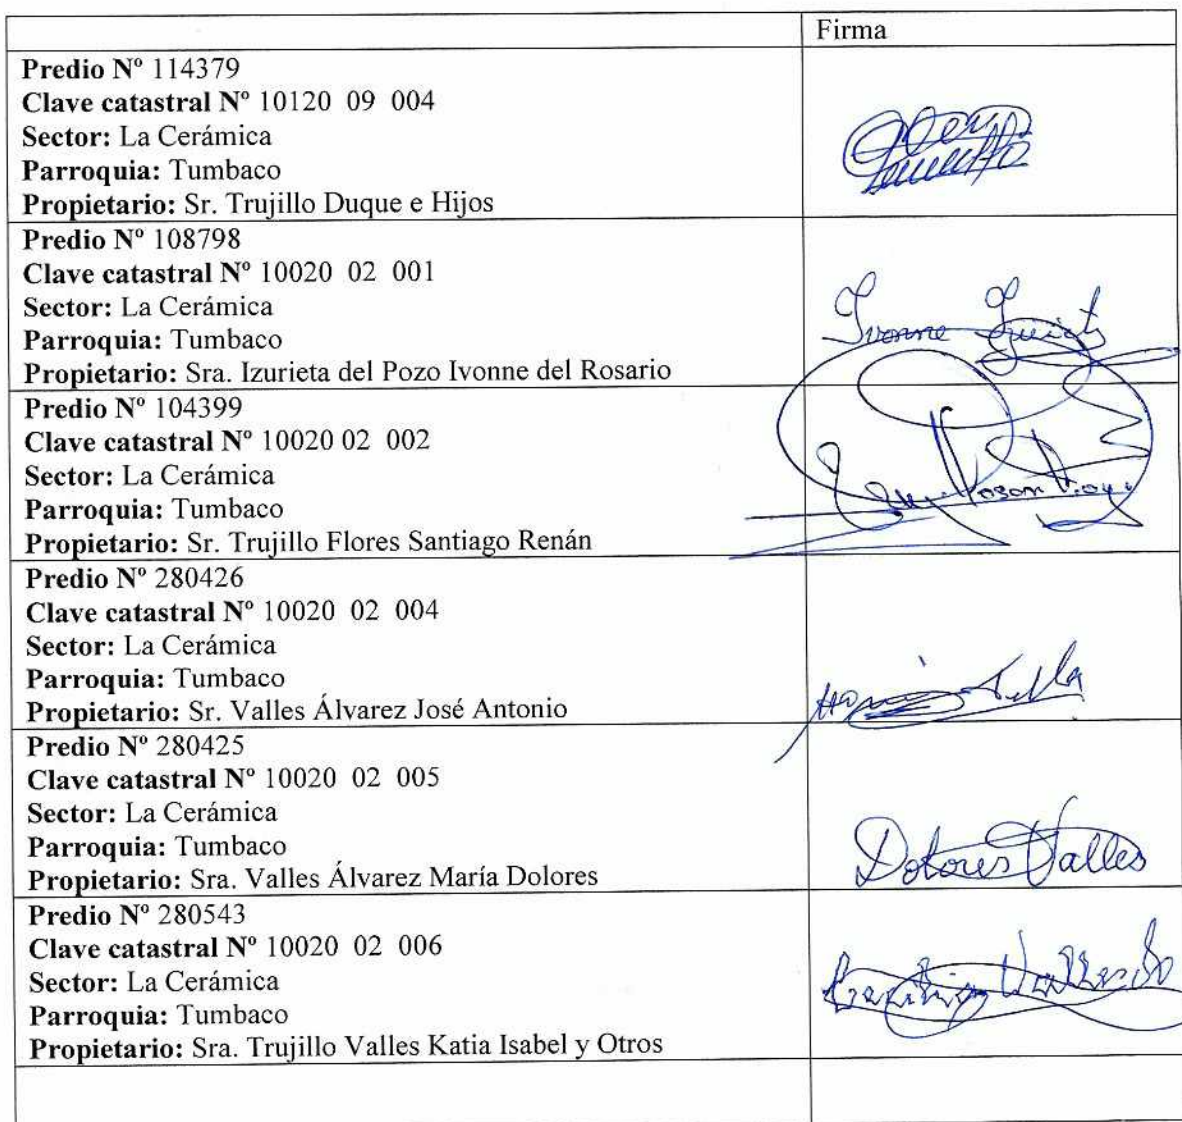 Firma
Predio Nº 114379
Clave catastral Nº 10120 09 004
Sector: La Cerámica
Parroquia: Tumbaco
Propietario: Sr. Trujillo Duque e Hijos
Predio Nº 108798
Clave catastral Nº 10020 02 001
Sector: La Cerámica
Parroquia: Tumbaco
Propietario: Sra. Izurieta del Pozo Ivonne del Rosario
Ivonne
Predio Nº 104399
Clave catastral Nº 10020 02 002
Sector: La Cerámica
Parroquia: Tumbaco
Propietario: Sr. Trujillo Flores Santiago Renán
Predio Nº 280426
Clave catastral Nº 10020 02 004
Sector: La Cerámica
Parroquia: Tumbaco
Propietario: Sr. Valles Álvarez José Antonio
Predio Nº 280425
Clave catastral Nº 10020 02 005
Sector: La Cerámica
Parroquia: Tumbaco
Propietario: Sra. Valles Álvarez María Dolores
Dolores Valles
Predio Nº 280543
Clave catastral Nº 10020 02 006
Sector: La Cerámica
Parroquia: Tumbaco
Propietario: Sra. Trujillo Valles Katia Isabel y Otros